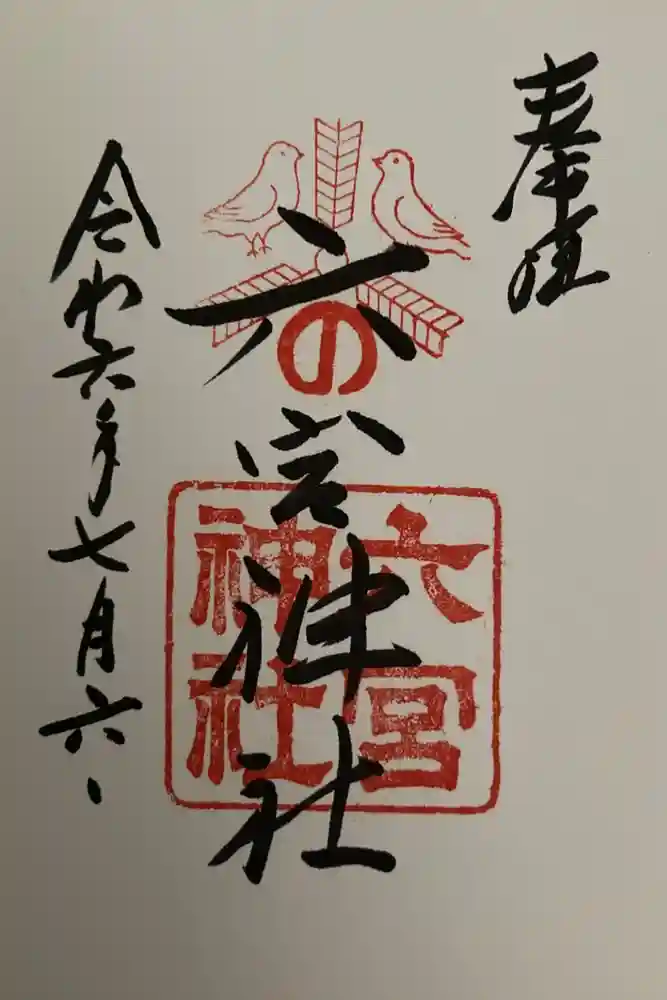 奉拝
六の宮神社
六宮
神社
令和六年七月六、